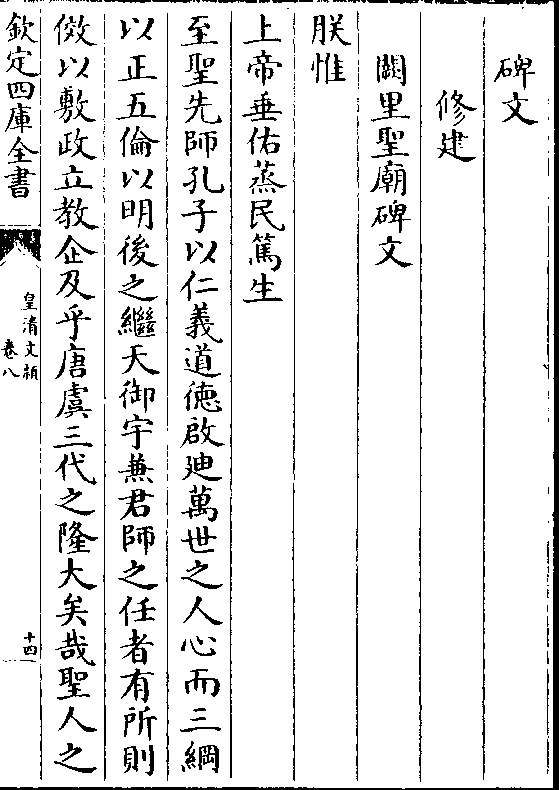 碑文
修建
闕里聖廟碑文
朕惟
上帝垂佑蒸民篤生
至聖先師孔子以仁義道德啟廸萬世之人心而三綱
以正五倫以明後之繼天御宇兼君師之任者有所則
傚以敷政立教企及乎唐虞三代之隆大矣哉聖人之
欽定四庫全書
皇清文穎
卷八
十四